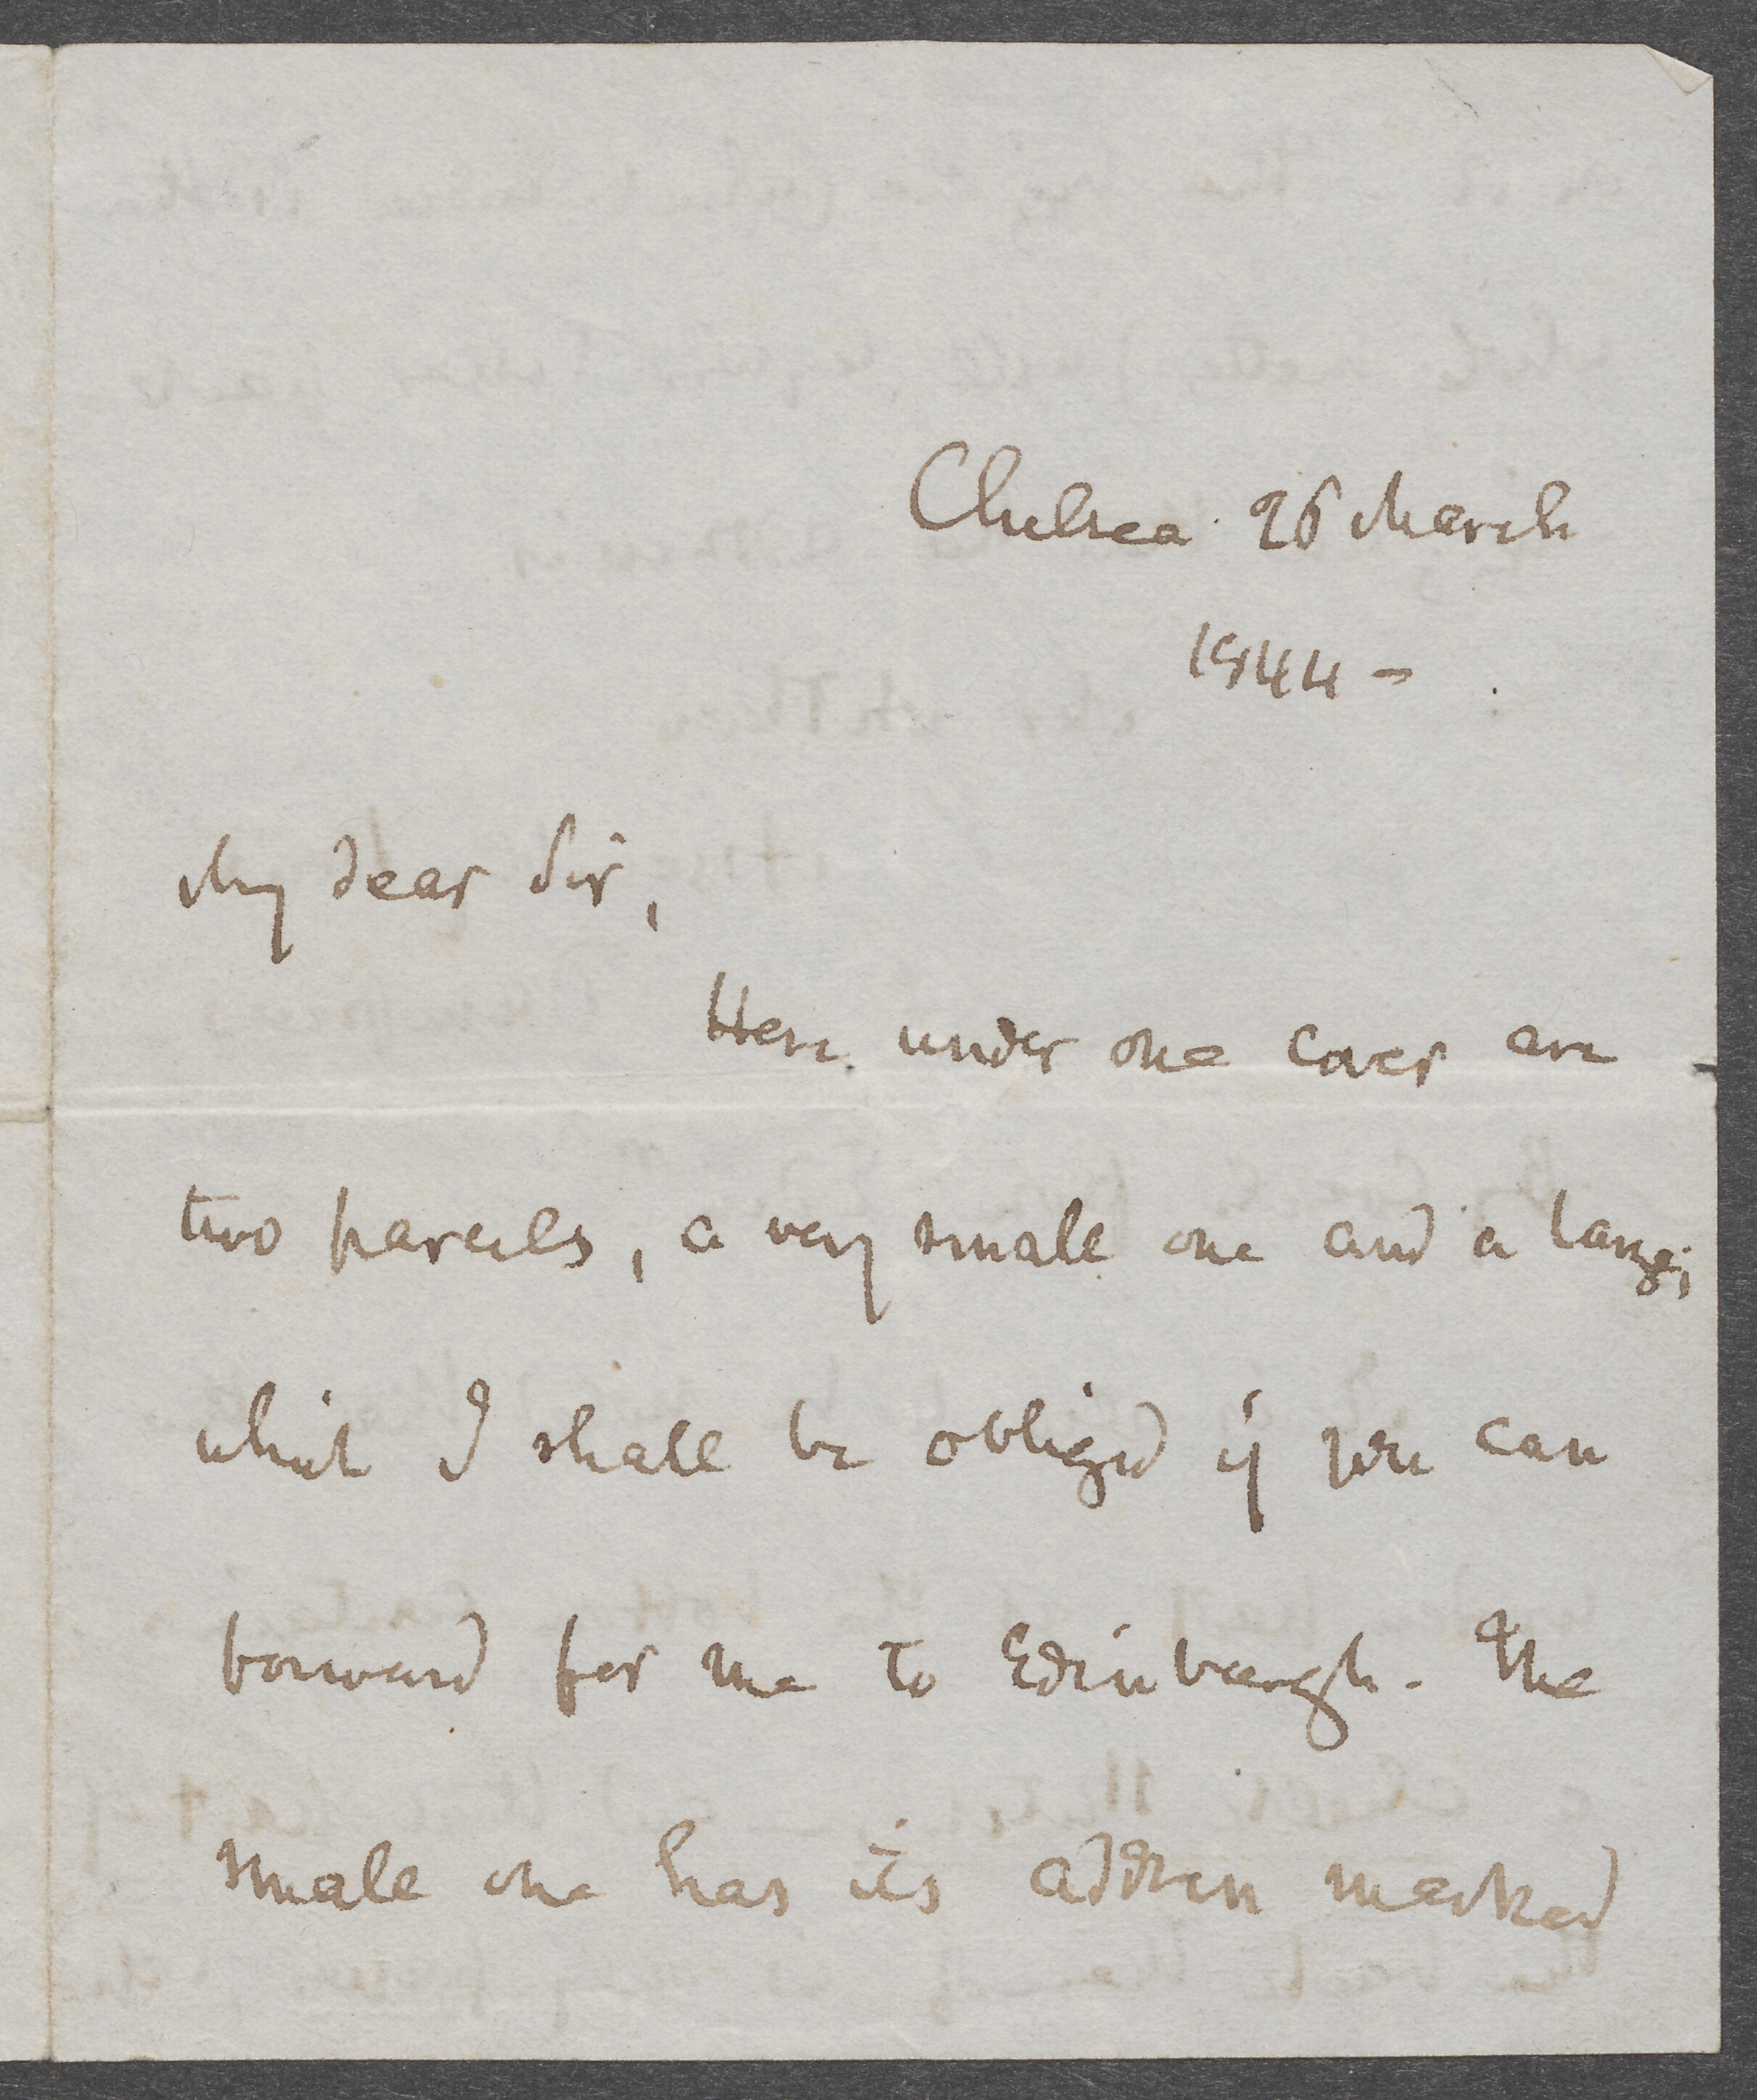 Chelsea 26 March
1844 -
My dear Sir,
Here under one cover are
two parcels, a very small one and a large;
which I shall be obliged if you can
forward for me to Edinburgh. The
small one has its address marked